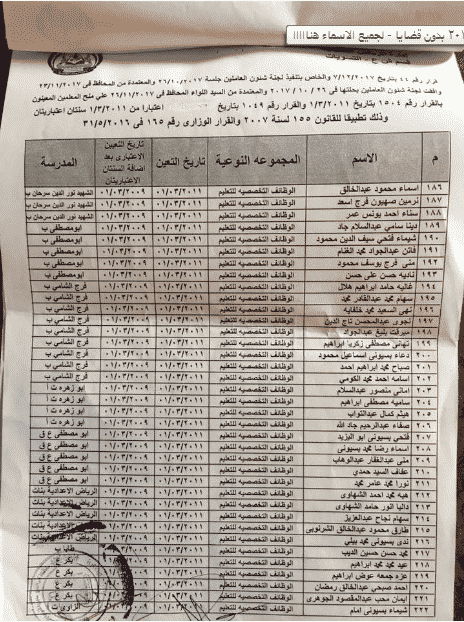 ٢٠١ بدون قضايا - لجميع الاسماء هنا ااااا
قرار رقم ٤٤ بتاريخ ٧/١٢/٢٠١٧ والخاص بتنفيذ لجنة شئون العاملين جلسة ٢٦/١٠/٢٠١٧ والمعتمدة من المحافظ فى ٢٣/١١/٢٠١٧
وافقت لجنة شئون العاملين بجلستها فى ٢٦/١٠/٢٠١٧ والمعتمدة من السيد اللواء المحافظ فى ٢٦/١١/٢٠١٧ على منح المعلمين المعينون
بالقرار رقم ١٥٠٤ بتاريخ ١/٣/٢٠١١ والقرار رقم ١٠٤٩ بتاريخ اعتبارا من ١/٣/٢٠١١ سنتان اعتباريتان
وذلك تطبيقا للقانون ١٥٥ لسنة ٢٠٠٧ والقرار الوزارى رقم ١٦٥ فى ٣١/٥/٢٠١٦
م الاسم المجموعه النوعية تاريخ التعين تاريخ التعيين الاعتبارى بعد اضافة السنتان الاعتباريتان المدرسة
١٨٦ اسماء محمود عبدالخالق الوظائف التخصصيه للتعليم ٠١/٠٣/٢٠١١ ٠١/٠٣/٢٠٠٩ الشهيد نور الدين سرحان ب
١٨٧ نرمين صهيون فرج اسعد الوظائف التخصصيه للتعليم ٠١/٠٣/٢٠١١ ٠١/٠٣/٢٠٠٩ الشهيد نور الدين سرحان ب
١٨٨ سناء احمد يونس عمر الوظائف التخصصيه للتعليم ٠١/٠٣/٢٠١١ ٠١/٠٣/٢٠٠٩ الشهيد نور الدين سرحان ب
١٨٩ دينا سامي عبدالسلام جاد الوظائف التخصصيه للتعليم ٠١/٠٣/٢٠١١ ٠١/٠٣/٢٠٠٩ ابومصطفى ب
١٩٠ شيماء فتحي سيف الدين محمود الوظائف التخصصيه للتعليم ٠١/٠٣/٢٠١١ ٠١/٠٣/٢٠٠٩ ابومصطفى ب
١٩١ فاتن عبدالجواد محمد الغنام الوظائف التخصصيه للتعليم ٠١/٠٣/٢٠١١ ٠١/٠٣/٢٠٠٩ ابومصطفى ب
١٩٢ منى فرج يوسف محمود الوظائف التخصصيه للتعليم ٠١/٠٣/٢٠١١ ٠١/٠٣/٢٠٠٩ ابومصطفى ب
١٩٣ ناديه حسن على حسن الوظائف التخصصيه للتعليم ٠١/٠٣/٢٠١١ ٠١/٠٣/٢٠٠٩ ابومصطفى ب
١٩٤ غاليه حامد ابراهيم هلال الوظائف التخصصيه للتعليم ٠١/٠٣/٢٠١١ ٠١/٠٣/٢٠٠٩ فرج الشامي ب
١٩٥ سهام محمد عبدالقادر محمد الوظائف التخصصيه للتعليم ٠١/٠٣/٢٠١١ ٠١/٠٣/٢٠٠٩ فرج الشامي ب
١٩٦ نهى السعيد محمد خلفايه الوظائف التخصصيه للتعليم ٠١/٠٣/٢٠١١ ٠١/٠٣/٢٠٠٩ فرج الشامي ب
١٩٧ نجوى عبدالمحسن تاج الدين الوظائف التخصصيه للتعليم ٠١/٠٣/٢٠١١ ٠١/٠٣/٢٠٠٩ فرج الشامي ب
١٩٨ ميرفت بليغ عبدالجواد الوظائف التخصصيه للتعليم ٠١/٠٣/٢٠١١ ٠١/٠٣/٢٠٠٩ فرج الشامي ب
١٩٩ تهاني مصطفى زكريا ابراهيم الوظائف التخصصيه للتعليم ٠١/٠٣/٢٠١١ ٠١/٠٣/٢٠٠٩ فرج الشامي ب
٢٠٠ دعاء بسيونى اسماعيل محمود الوظائف التخصصيه للتعليم ٠١/٠٣/٢٠١١ ٠١/٠٣/٢٠٠٩ فرج الشامي ب
٢٠١ صباح محمد ابراهيم احمد الوظائف التخصصيه للتعليم ٠١/٠٣/٢٠١١ ٠١/٠٣/٢٠٠٩ فرج الشامي ب
٢٠٢ اسامه احمد محمد الكومي الوظائف التخصصيه للتعليم ٠١/٠٣/٢٠١١ ٠١/٠٣/٢٠٠٩ فرج الشامي ب
٢٠٣ امانى منصور عبدالسلام الوظائف التخصصيه للتعليم ٠١/٠٣/٢٠١١ ٠١/٠٣/٢٠٠٩ ابو زهره ت أ
٢٠٤ ساميه مصطفى ابراهيم الوظائف التخصصيه للتعليم ٠١/٠٣/٢٠١١ ٠١/٠٣/٢٠٠٩ ابو زهره ت أ
٢٠٥ هيثم كمال عبدالتواب الوظائف التخصصيه للتعليم ٠١/٠٣/٢٠١١ ٠١/٠٣/٢٠٠٩ ابو زهره ت أ
٢٠٦ صفاء عبدالرحيم جاد الله الوظائف التخصصيه للتعليم ٠١/٠٣/٢٠١١ ٠١/٠٣/٢٠٠٩ ابو زهره ت أ
٢٠٧ فتحي بسيونى ابو اليزيد الوظائف التخصصيه للتعليم ٠١/٠٣/٢٠١١ ٠١/٠٣/٢٠٠٩ ابو مصطفى ع ق
٢٠٨ اسماء رضا محمد بسيونى الوظائف التخصصيه للتعليم ٠١/٠٣/٢٠١١ ٠١/٠٣/٢٠٠٩ ابو مصطفى ع ق
٢٠٩ منى عبدالغفار عبدالوهاب الوظائف التخصصيه للتعليم ٠١/٠٣/٢٠١١ ٠١/٠٣/٢٠٠٩ ابو مصطفى ع ق
٢١٠ عفاف السيد حمدى الوظائف التخصصيه للتعليم ٠١/٠٣/٢٠١١ ٠١/٠٣/٢٠٠٩ ابو مصطفى ع ق
٢١١ نورا محمد عامر محمد الوظائف التخصصيه للتعليم ٠١/٠٣/٢٠١١ ٠١/٠٣/٢٠٠٩ الرياض الاعدادية بنات
٢١٢ هبه محمد احمد الشهاوى الوظائف التخصصيه للتعليم ٠١/٠٣/٢٠١١ ٠١/٠٣/٢٠٠٩ الرياض الاعدادية بنات
٢١٣ داليا انور حامد الشهاوى الوظائف التخصصيه للتعليم ٠١/٠٣/٢٠١١ ٠١/٠٣/٢٠٠٩ الرياض الاعدادية بنات
٢١٤ سهام نجاح عبدالعزيز الوظائف التخصصيه للتعليم ٠١/٠٣/٢٠١١ ٠١/٠٣/٢٠٠٩ الرياض الاعدادية بنات
٢١٥ طارق محمود عبدالخالق الشرنوبى الوظائف التخصصيه للتعليم ٠١/٠٣/٢٠١١ ٢٠٠٩ الرياض الاعدادية بنات
٢١٦ ندى بسيونى محمد بيلى الوظائف التخصصيه للتعليم ٠١/٠٣/٢٠١١ ٢٠٠٩
٢١٧ محمد حسن حسين الديب الوظائف التخصصيه للتعليم ٠١/٠٣/٢٠١١ ٢٠٠٩
٢١٨ عيد محمد محمد ابراهيم الوظائف التخصصيه للتعليم ٠١/٠٣/٢٠١١ ٢٠٠٩ بكر ع
٢١٩ عزه جمعه عوض ابراهيم الوظائف التخصصيه للتعليم ٠١/٠٣/٢٠١١ ٢٠٠٩ بكر ع
٢٢٠ احمد صبحي عبدالخالق رمضان الوظائف التخصصيه للتعليم ٠١/٠٣/٢٠١١ ٢٠٠٩ بكر ع
٢٢١ ايمان محب عبدالمقصود الجوهرى الوظائف التخصصيه للتعليم ٠١/٠٣/٢٠١١ ٢٠٠٩ بكر ع
٢٢٢ شيماء بسيونى امام الوظائف التخصصيه للتعليم ٠١/٠٣/٢٠١١ ٢٠٠٩